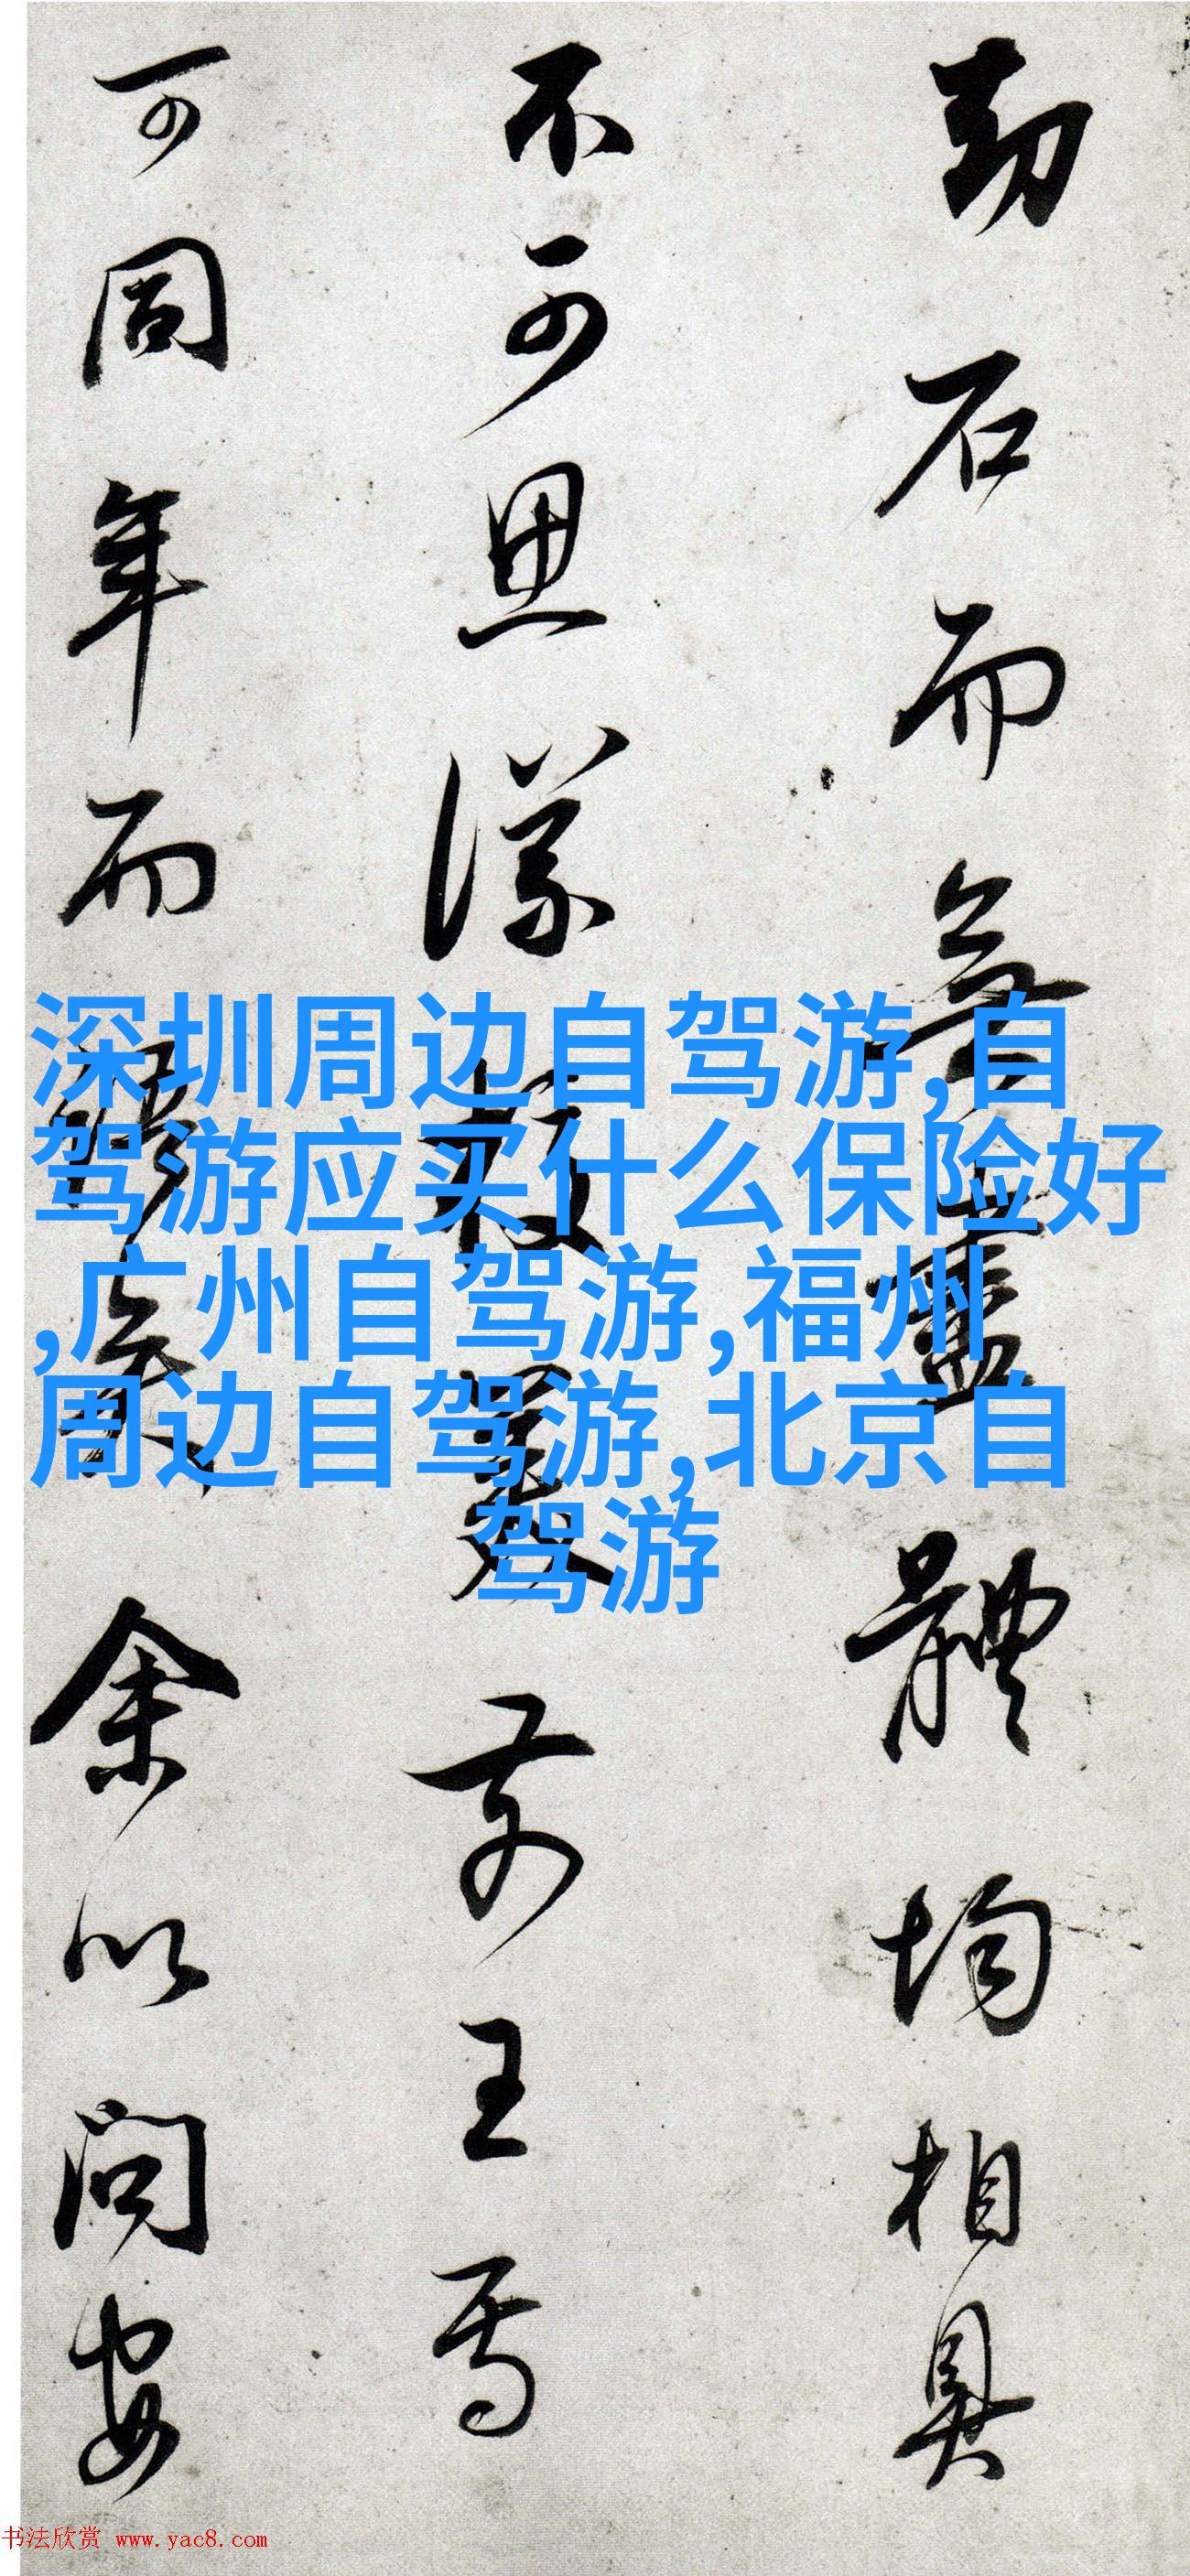 劫石而無盡體均相具
不可思議
前王焉
可同年而
余以問安
深圳周边自驾游,自
驾游应买什么保险好
,广州自驾游,福州
周边自驾游,北京自
驾游
书法欣赏 www.yac8.com